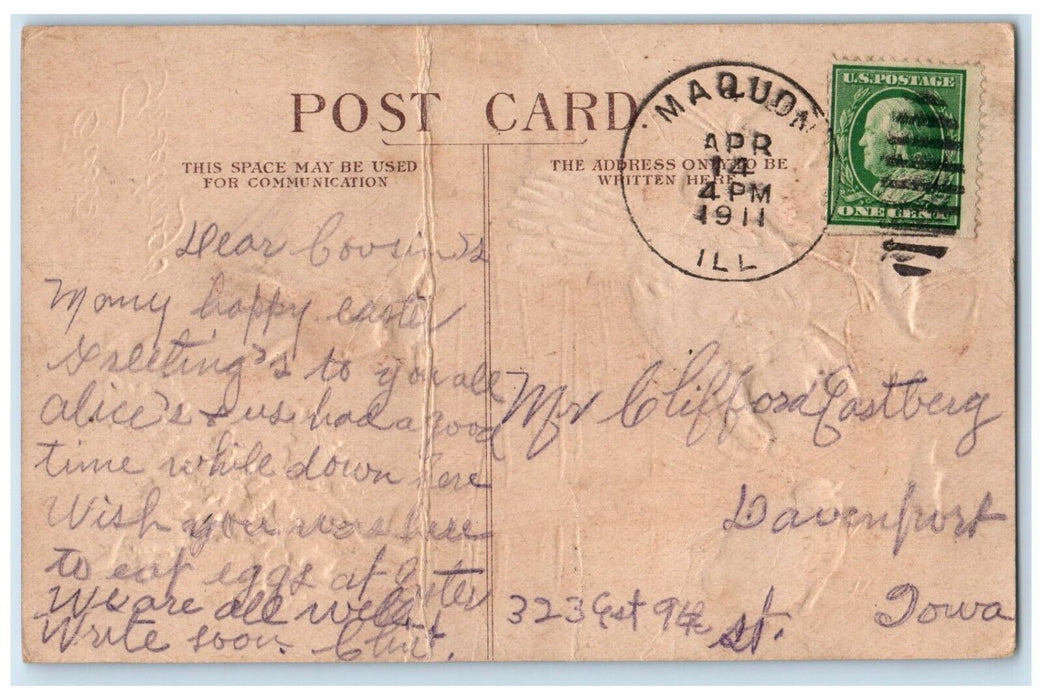 POST CARD.
THIS SPACE MAY BE USED
FOR COMMUNICATION
THE ADDRESS ONLY TO BE
WRITTEN HERE
MAQUON
APR
14
4 PM
1911
ILL
U.S. POSTAGE
ONE CENT
Dear Cousin's
Many happy easter
Greeting's to you all
alice's + us had a good
time while down here
Wish you were here
to eat eggs at Easter
We are all well.
Write soon. Clint.
Mr Clifford Eastberg
Davenport
323 9th St.
Iowa